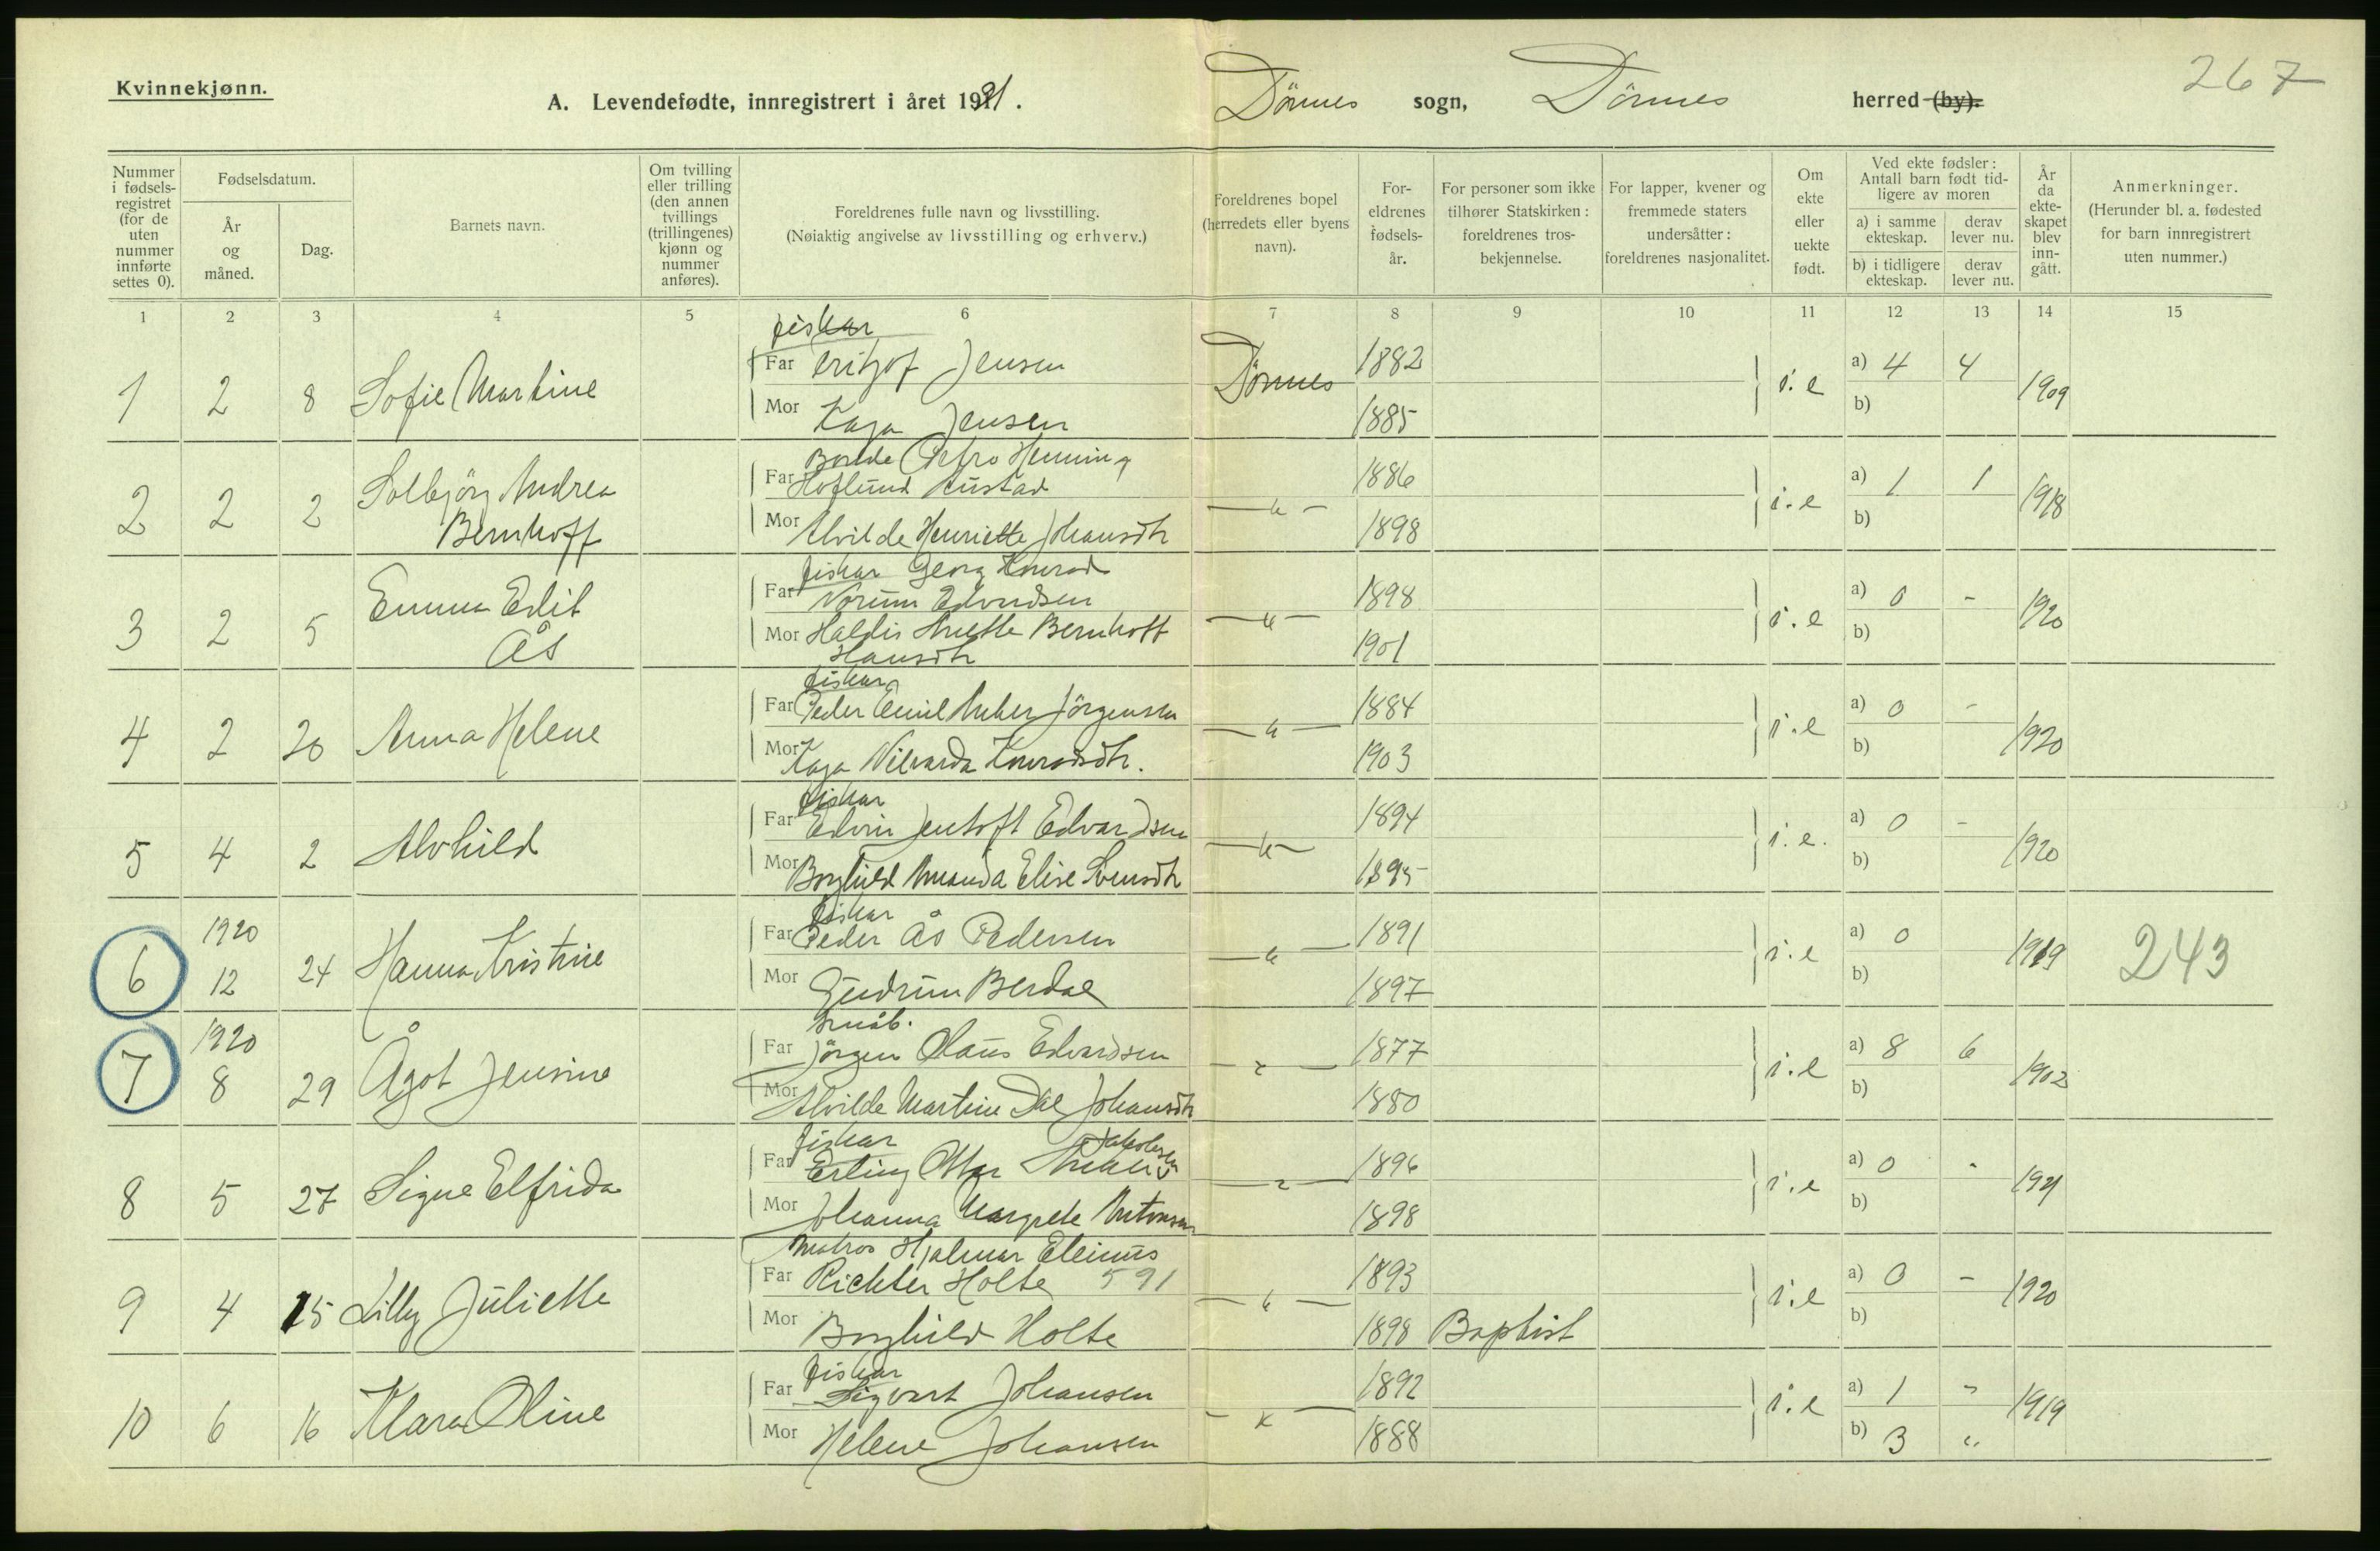 Kvinnekjønn.
A. Levendefødte, innregistrert i året 1921.
Dönnes sogn, Dönnes herred (by).
267
Nummer i fødsels-registret (for de uten nummer innførte settes 0).
Fødselsdatum.
År og måned.
Dag.
Barnets navn.
Om tvilling eller trilling (den annen tvillings (trillingenes) kjønn og nummer anføres).
Foreldrenes fulle navn og livsstilling.
(Nøiaktig angivelse av livsstilling og erhverv.)
Foreldrenes bopel (herredets eller byens navn).
For-eldrenes fødsels-år.
For personer som ikke tilhører Statskirken: foreldrenes tros-bekjennelse.
For lapper, kvener og fremmede staters undersåtter: foreldrenes nasjonalitet.
Om ekte eller uekte født.
Ved ekte fødsler: Antall barn født tid-ligere av moren
a) i samme ekteskap.
derav lever nu.
b) i tidligere ekteskap.
derav lever nu.
År da ekte-skapet blev inn-gått.
Anmerkninger.
(Herunder bl. a. fødested for barn innregistrert uten nummer.)
1 2 3 4 5 6 7 8 9 10 11 12 13 14 15
fiskar
1 2 8 Sofie Martine Far Jensen Dönnes 1882 i. e a) 4 4 1909
Mor Kaja Jensen 1885 b)
Petro Henning
2 2 2 Solbjörg Andrea Far Hoflund —"— 1886 i. e a) 1 1 1918
Bernhoff Mor Alvilde Henriette Johansdtr 1898 b)
fiskar Georg Konrad
3 2 5 Emma Edit Far Edvardsen —"— 1898 i. e a) 0 - 1920
Ås Mor Haldis Anette Bernhoff 1901 b)
Hansdtr
fiskar
4 2 20 Anna Helene Far Peder Emil Anker Jörgensen —"— 1884 i. e a) 0 - 1920
Mor Kaja Vilvarda Konradsdtr. 1903 b)
fiskar
5 4 2 Alvhild Far Edvin Jentoft Edvardsen —"— 1894 i. e. a) 0 - 1920
Mor Borghild Amanda Elise Svensdtr 1895 b)
fiskar
6 1920 12 24 Hanna Kristine Far Peder Ås Pedersen —"— 1891 i. e a) 0 1919 243
Mor Gudrun Berdal 1897 b)
småb.
7 1920 8 29 Ågot Jensine Far Jörgen Olaus Edvardsen —"— 1877 i. e a) 8 6 1902
Mor Alvilde Martine Dal Johansdtr 1880 b)
fiskar Jakobsen
8 5 27 Signe Elfrida Far Erling Ottar —"— 1896 i. e a) 0 - 1921
Mor Johanna Margrete Antonsen 1898 b)
Matros Hjalmar
9 4 15 Lilly Juliette Far Richter Holte 591 —"— 1893 i. e a) 0 - 1920
Mor Borghild Holte 1898 Baptist b)
fiskar
10 6 16 Klara Oline Far Sigvart Johansen —"— 1892 i. e a) 1 " 1919
Mor Helene Johansen 1888 b) 3 "